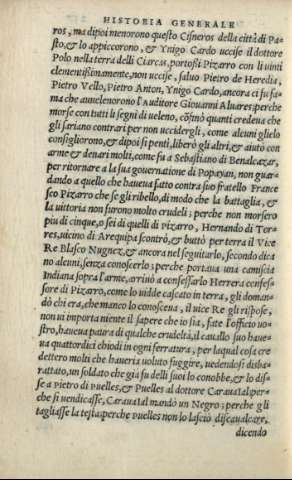 HISTORIA GENERALE
ros, ma dipoi menorono questo Cisneros della città di Pa-
sto, & lo appiccorono, & Ynigo Cardo uccise il dottore
Polo nella terra delli Ciarcas, portossi Pizarro con li vinti
clementissimamente, non uccise, saluo Pietro de Heredia,
Pietro Vello, Pietro Anton, Ynigo Cardo, ancora ci fu fa-
ma che auuelenorono l'Auditore Giouanni Aluares: perche
morse con tutti li segni di ueleno, cõfinò quanti credeua che
gli sariano contrari per non uccidergli, come alcuni glielo
consigliorono, & dipoi si penti, liberò gli altri, & aiuto con
arme & denari molti, come fu a Sebastiano di Benalcazar,
per ritornare a la sua gouernatione di Popayan, non guar-
dando a quello che haueua fatto contra suo fratello France
sco Pizarro che se gli ribello, di modo che la battaglia, &
la uittoria non furono molto crudeli; perche non morsero
piu di cinque, o sei di quelli di Pizarro, Hernando di Tor-
res, uicino di Arequipa scontrò, & buttò per terra il Vice
Re Blasco Nugnez, & ancora nel seguitarlo, secondo dica
no alcuni, senza conoscerlo; perche portaua una camiscia
Indiana sopra l'arme, arriuò a confessarlo Herrera confes-
sore di Pizarro, come lo uidde cascato in terra, gli doman-
dò chi era, che manco lo conosceua, il uice Re gli rispose,
non ui importa niente il sapere che io sia, fate l'officio uo-
stro, haueua paura di qualche crudeltà, il cauallo suo haue-
ua quattordici chiodi in ogni ferratura, per laqual cosa cre
dettero molti che haueria uoluto fuggire, uedendosi disba-
rattato, un soldato che gia fu delli suoi lo conobbe, & lo dis-
se a Pietro di Puelles, & Puelles al dottore Carauaial per-
che si uendicasse, Carauaial mandò un Negro; perche gli
tagliasse la testa; perche Puelles non lo lasciò discaualcare,
dicendo